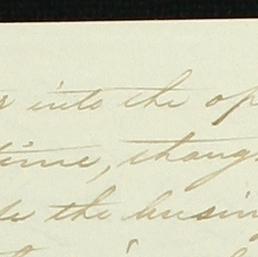 into the op
time, thoug
the busin